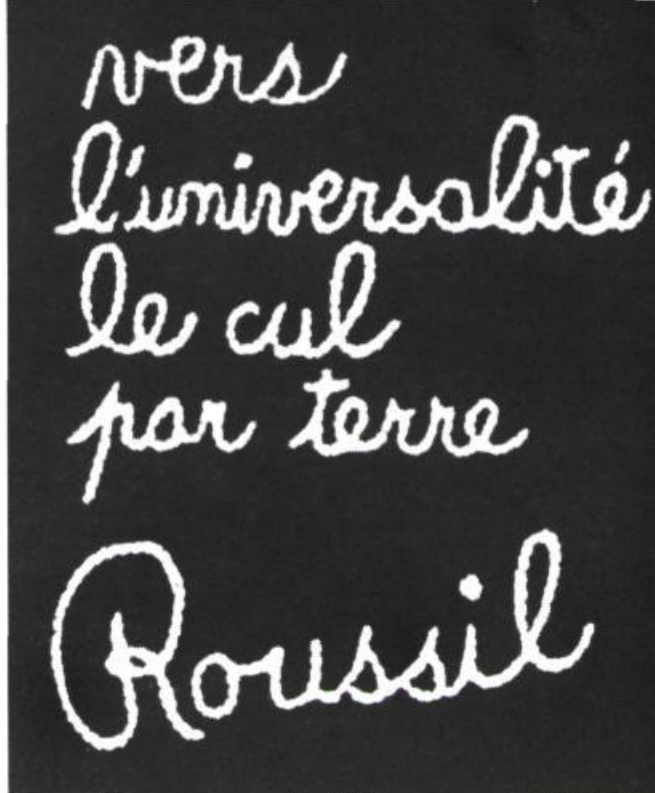 vers
l'universalité
le cul
par terre
Roussil